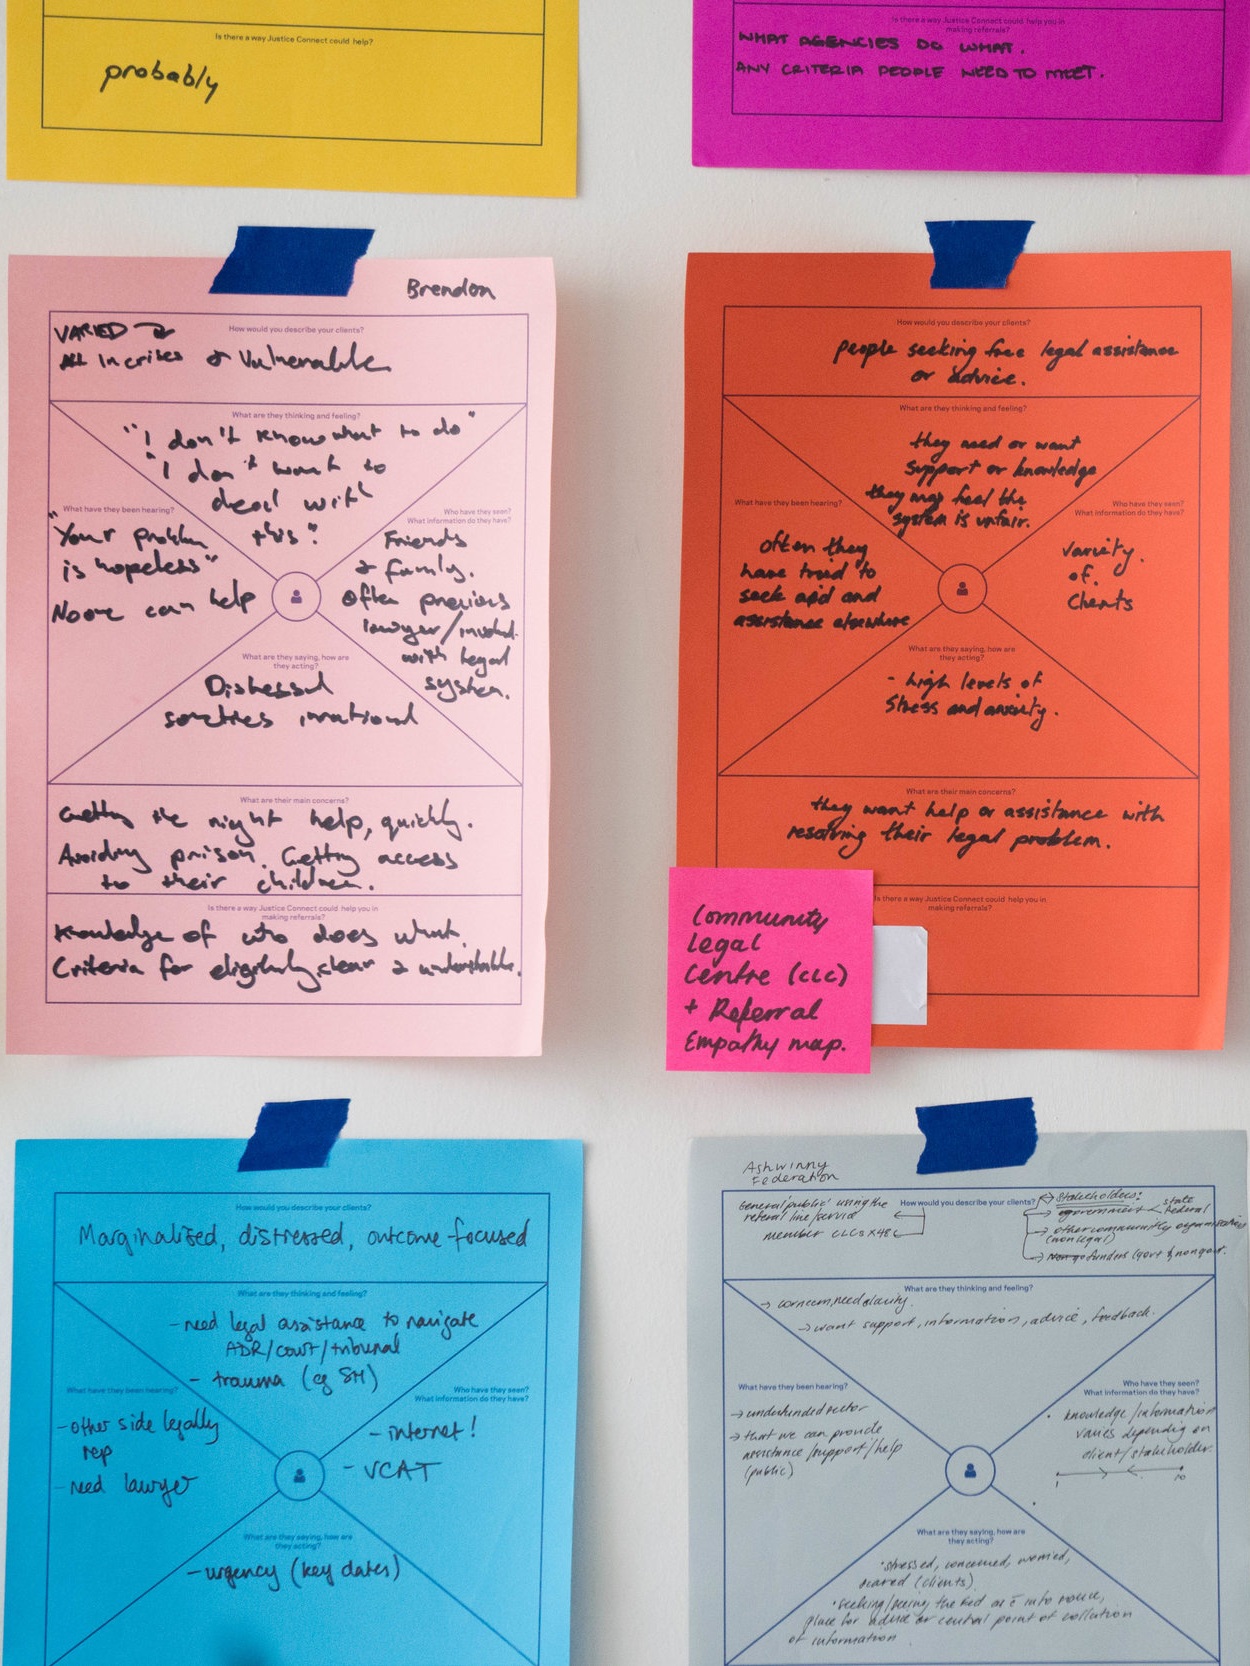 Is there a way Justice Connect could help?
probably
Is there a way Justice Connect could help you in
making referrals?
WHAT AGENCIES DO WHAT.
ANY CRITERIA PEOPLE NEED TO MEET.
Brendon
How would you describe your clients?
VARIED
ALL In crises & Vulnerable
What are they thinking and feeling?
"I don't know what to do"
"I don't want to
deal with
this"
What have they been hearing?
"Your problem
is hopeless"
No one can help
Who have they seen?
What information do they have?
Friends
& family.
Often previous
lawyer/involved.
with legal
system.
What are they saying, how are
they acting?
Distressed
sometimes irrational
What are their main concerns?
Getting the right help, quickly.
Avoiding prison. Getting access
to their children.
Is there a way Justice Connect could help you in
making referrals?
Knowledge of who does what.
Criteria for eligibility, clear &
How would you describe your clients?
people seeking free legal assistance
or advice.
What are they thinking and feeling?
they need or want
support or knowledge
they may feel the
system is unfair.
What have they been hearing?
often they
have tried to
seek aid and
assistance elsewhere
Who have they seen?
What information do they have?
variety
of
clients
What are they saying, how are
they acting?
- high levels of
stress and anxiety.
What are their main concerns?
they want help or assistance with
resolving their legal problem.
is there a way Justice Connect could help you in
making referrals?
Community
Legal
Centre (CLC)
+ Referral
Empathy map.
How would you describe your clients?
Marginalised, distressed, outcome focused
What are they thinking and feeling?
- need legal assistance to navigate
ADR/court/tribunal
- trauma (eg SH)
What have they been hearing?
- other side legally
rep
- need lawyer
Who have they seen?
What information do they have?
- internet!
- VCAT
What are they saying, how are
they acting?
- urgency (key dates)
Ashwinny
Federation
How would you describe your clients?
General 'public' using the
referral line/service
member CLCs x48
Stakeholders:
government
state
federal
other community organisations
(non legal)
funders (govt & nongovt.
What are they thinking and feeling?
→ concern, need clarity.
→ want support, information, advice, feedback.
What have they been hearing?
→ underfunded sector
→ that we can provide
assistance/support/help
(public)
Who have they seen?
What information do they have?
• knowledge/information
varies depending on
client/stakeholder.
1 10
What are they saying, how are
they acting?
• stressed, concerned, worried,
scared (clients)
• seeking/seeing the fed as
place for advice or central point of collation
of information